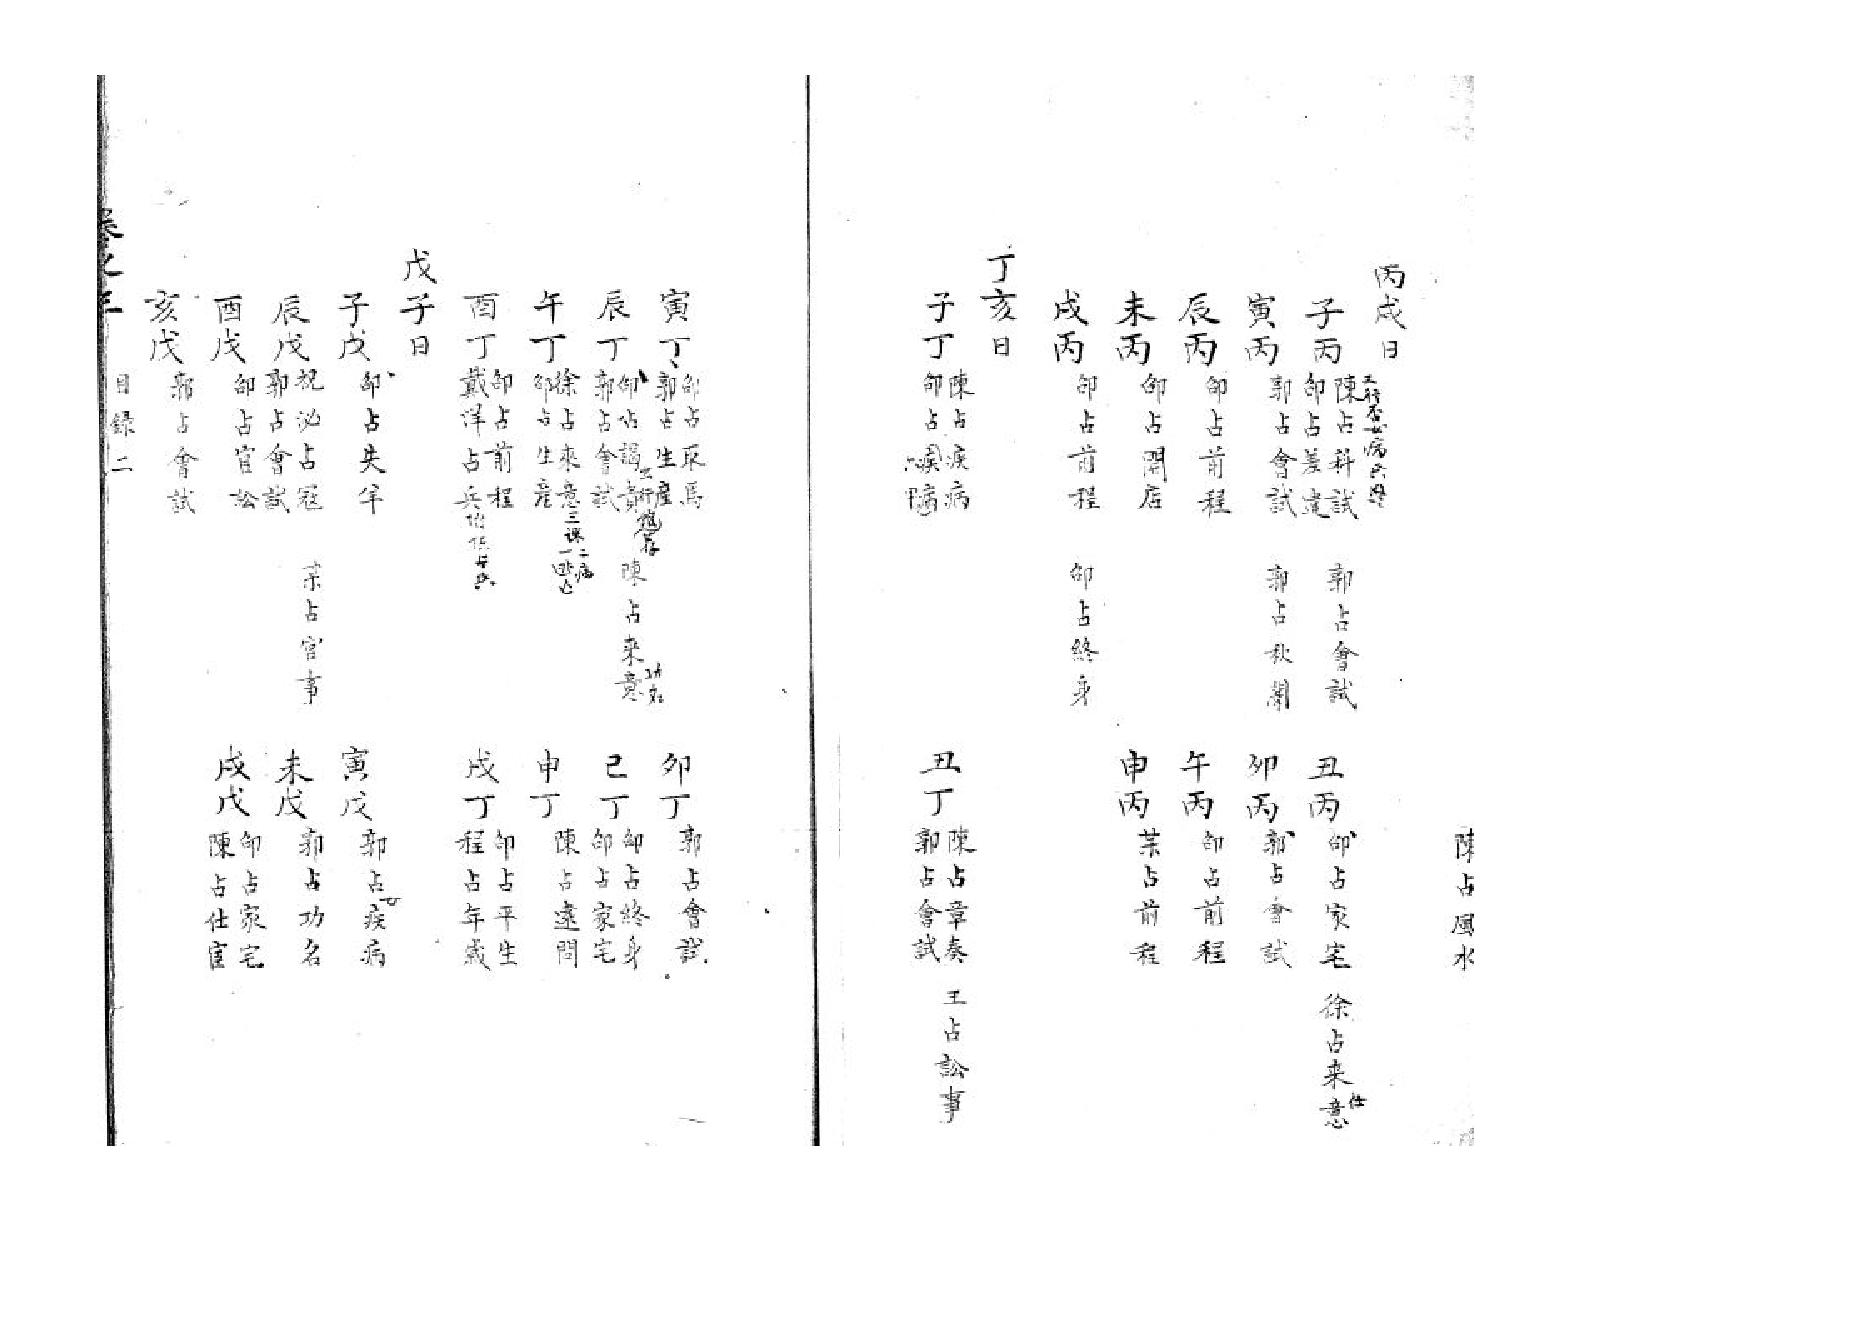 陳占風水
丙戌日
子丙 陳占科試 郭占會試
邵占差遣
丑丙 邵占家宅 徐占来意 仕
寅丙 郭占會試 郭占秋闈
卯丙 郭占會試
辰丙 邵占前程
午丙 邵占前程
未丙 邵占開店
申丙 占前程
戌丙 邵占前程 邵占終身
丁亥日
子丁 陳占疾病
邵占疾病
丑丁 陳占章奏 王占訟事
郭占會試
寅丁 邵占取馬
郭占生產
卯丁 郭占會試
辰丁 邵占謁貴 陳占來意 功名
郭占會試
巳丁 邵占終身
邵占家宅
午丁 徐占來意 三課
邵占生產
申丁 陳占遠問
酉丁 邵占前程
戴洋占兵
戌丁 邵占平生
程占年歲
戊子日
子戊 邵占失牛
寅戊 郭占疾病
辰戊 祝泌占寇 占官事
郭占會試
未戊 郭占功名
酉戊 邵占官訟
戌戊 邵占家宅
陳占仕宦
亥戊 郭占會試
目錄二